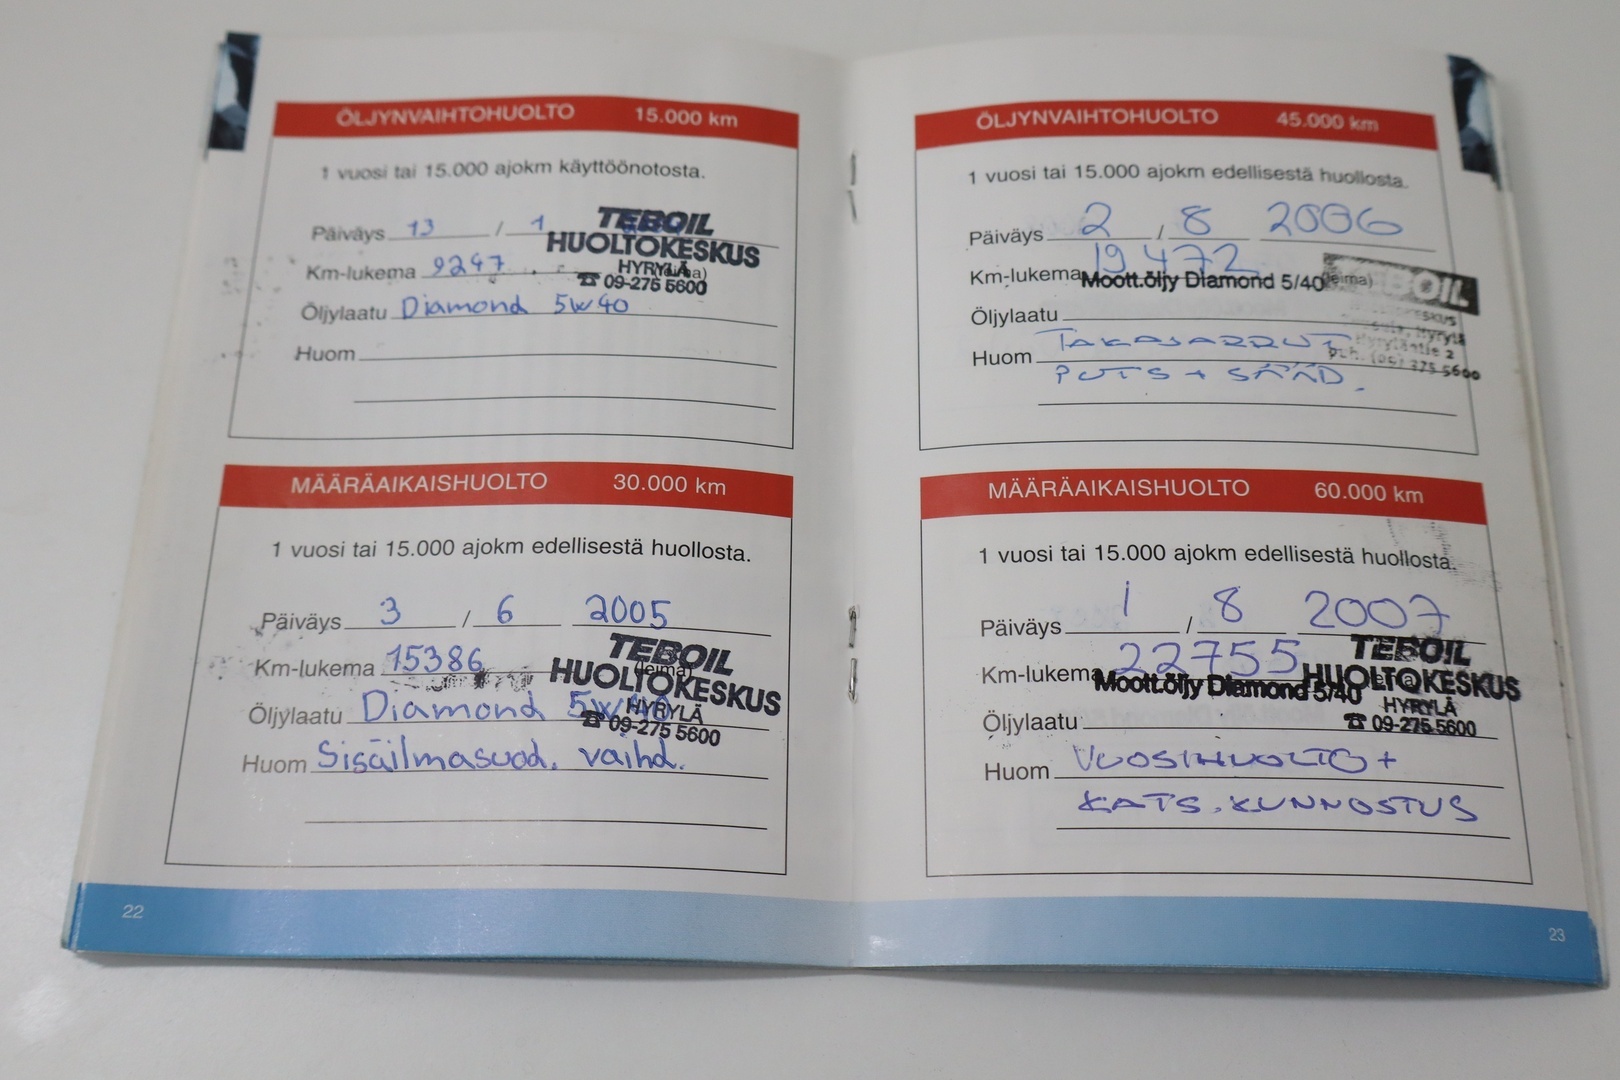 ÖLJYNVAIHTOHUOLTO 15.000 km
1 vuosi tai 15.000 ajokm käyttöönotosta.
Päiväys 13 / 1
TEBOIL
HUOLTOKESKUS
HYRYLÄ
☎ 09-275 5600
Km-lukema 9247 (leima)
Öljylaatu Diamond 5W40
Huom
MÄÄRÄAIKAISHUOLTO 30.000 km
1 vuosi tai 15.000 ajokm edellisestä huollosta.
Päiväys 3 / 6 2005
Km-lukema 15386 (leima)
TEBOIL
HUOLTOKESKUS
HYRYLÄ
☎ 09-275 5600
Öljylaatu Diamond 5W40
Huom Sisäilmasuod. vaihd.
22
ÖLJYNVAIHTOHUOLTO 45.000 km
1 vuosi tai 15.000 ajokm edellisestä huollosta.
Päiväys 2 / 8 2006
Km-lukema 19472 (leima)
Moott.öljy Diamond 5/40
TEBOIL
Hyrylä
Hyryläntie 2
puh. (09) 275 5600
Öljylaatu
Huom TAKAJARRUT
PUTS + SÄÄD.
MÄÄRÄAIKAISHUOLTO 60.000 km
1 vuosi tai 15.000 ajokm edellisestä huollosta.
Päiväys 1 / 8 2007
Km-lukema 22755
Moott.öljy Diamond 5/40
TEBOIL
HUOLTOKESKUS
HYRYLÄ
☎ 09-275 5600
Öljylaatu
Huom VUOSIHUOLTO +
KATS.KUNNOSTUS
23